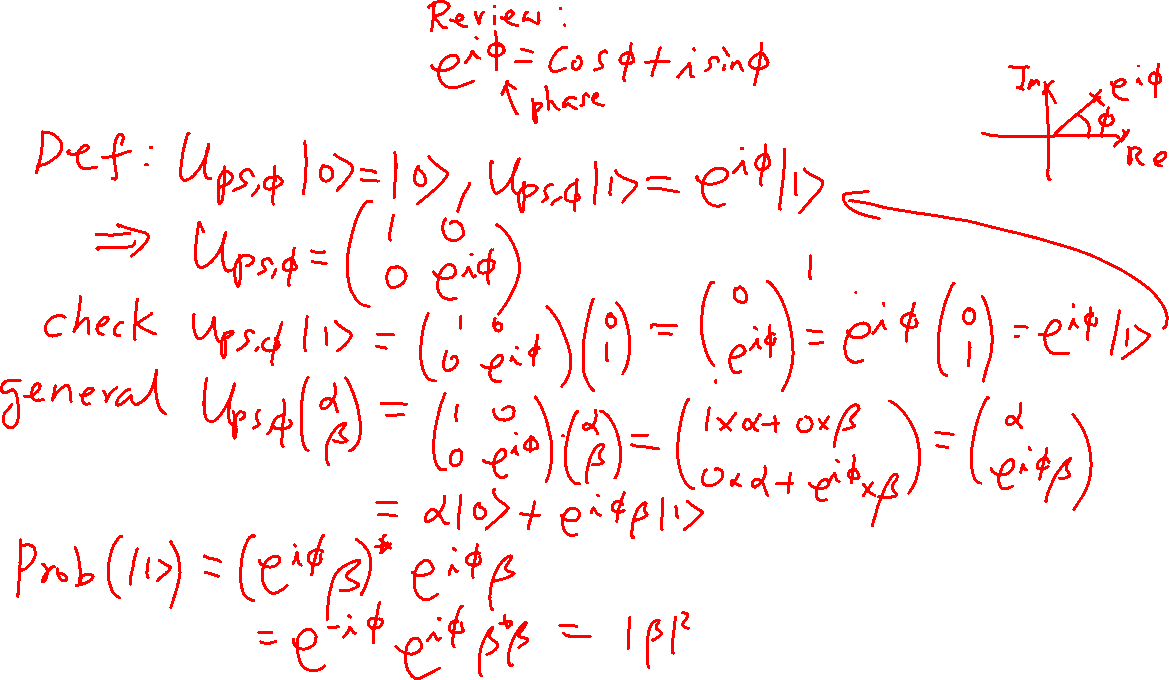 Review:
e^{iϕ} = cosϕ + i sinϕ
↑ phase
Im e^{iϕ}
ϕ
Re
Def: U_{ps,ϕ}|0> = |0>, U_{ps,ϕ}|1> = e^{iϕ}|1>
⇒ U_{ps,ϕ} = (1 0; 0 e^{iϕ})
check U_{ps,ϕ}|1> = (1 0; 0 e^{iϕ})(0; 1) = (0; e^{iϕ}) = e^{iϕ}(0; 1) = e^{iϕ}|1>
general U_{ps,ϕ}(α; β) = (1 0; 0 e^{iϕ})·(α; β) = (1×α+0×β; 0×α+e^{iϕ}×β) = (α; e^{iϕ}β)
= α|0> + e^{iϕ}β|1>
Prob(|1>) = (e^{iϕ}β)* e^{iϕ}β
= e^{-iϕ} e^{iϕ} β*β = |β|²